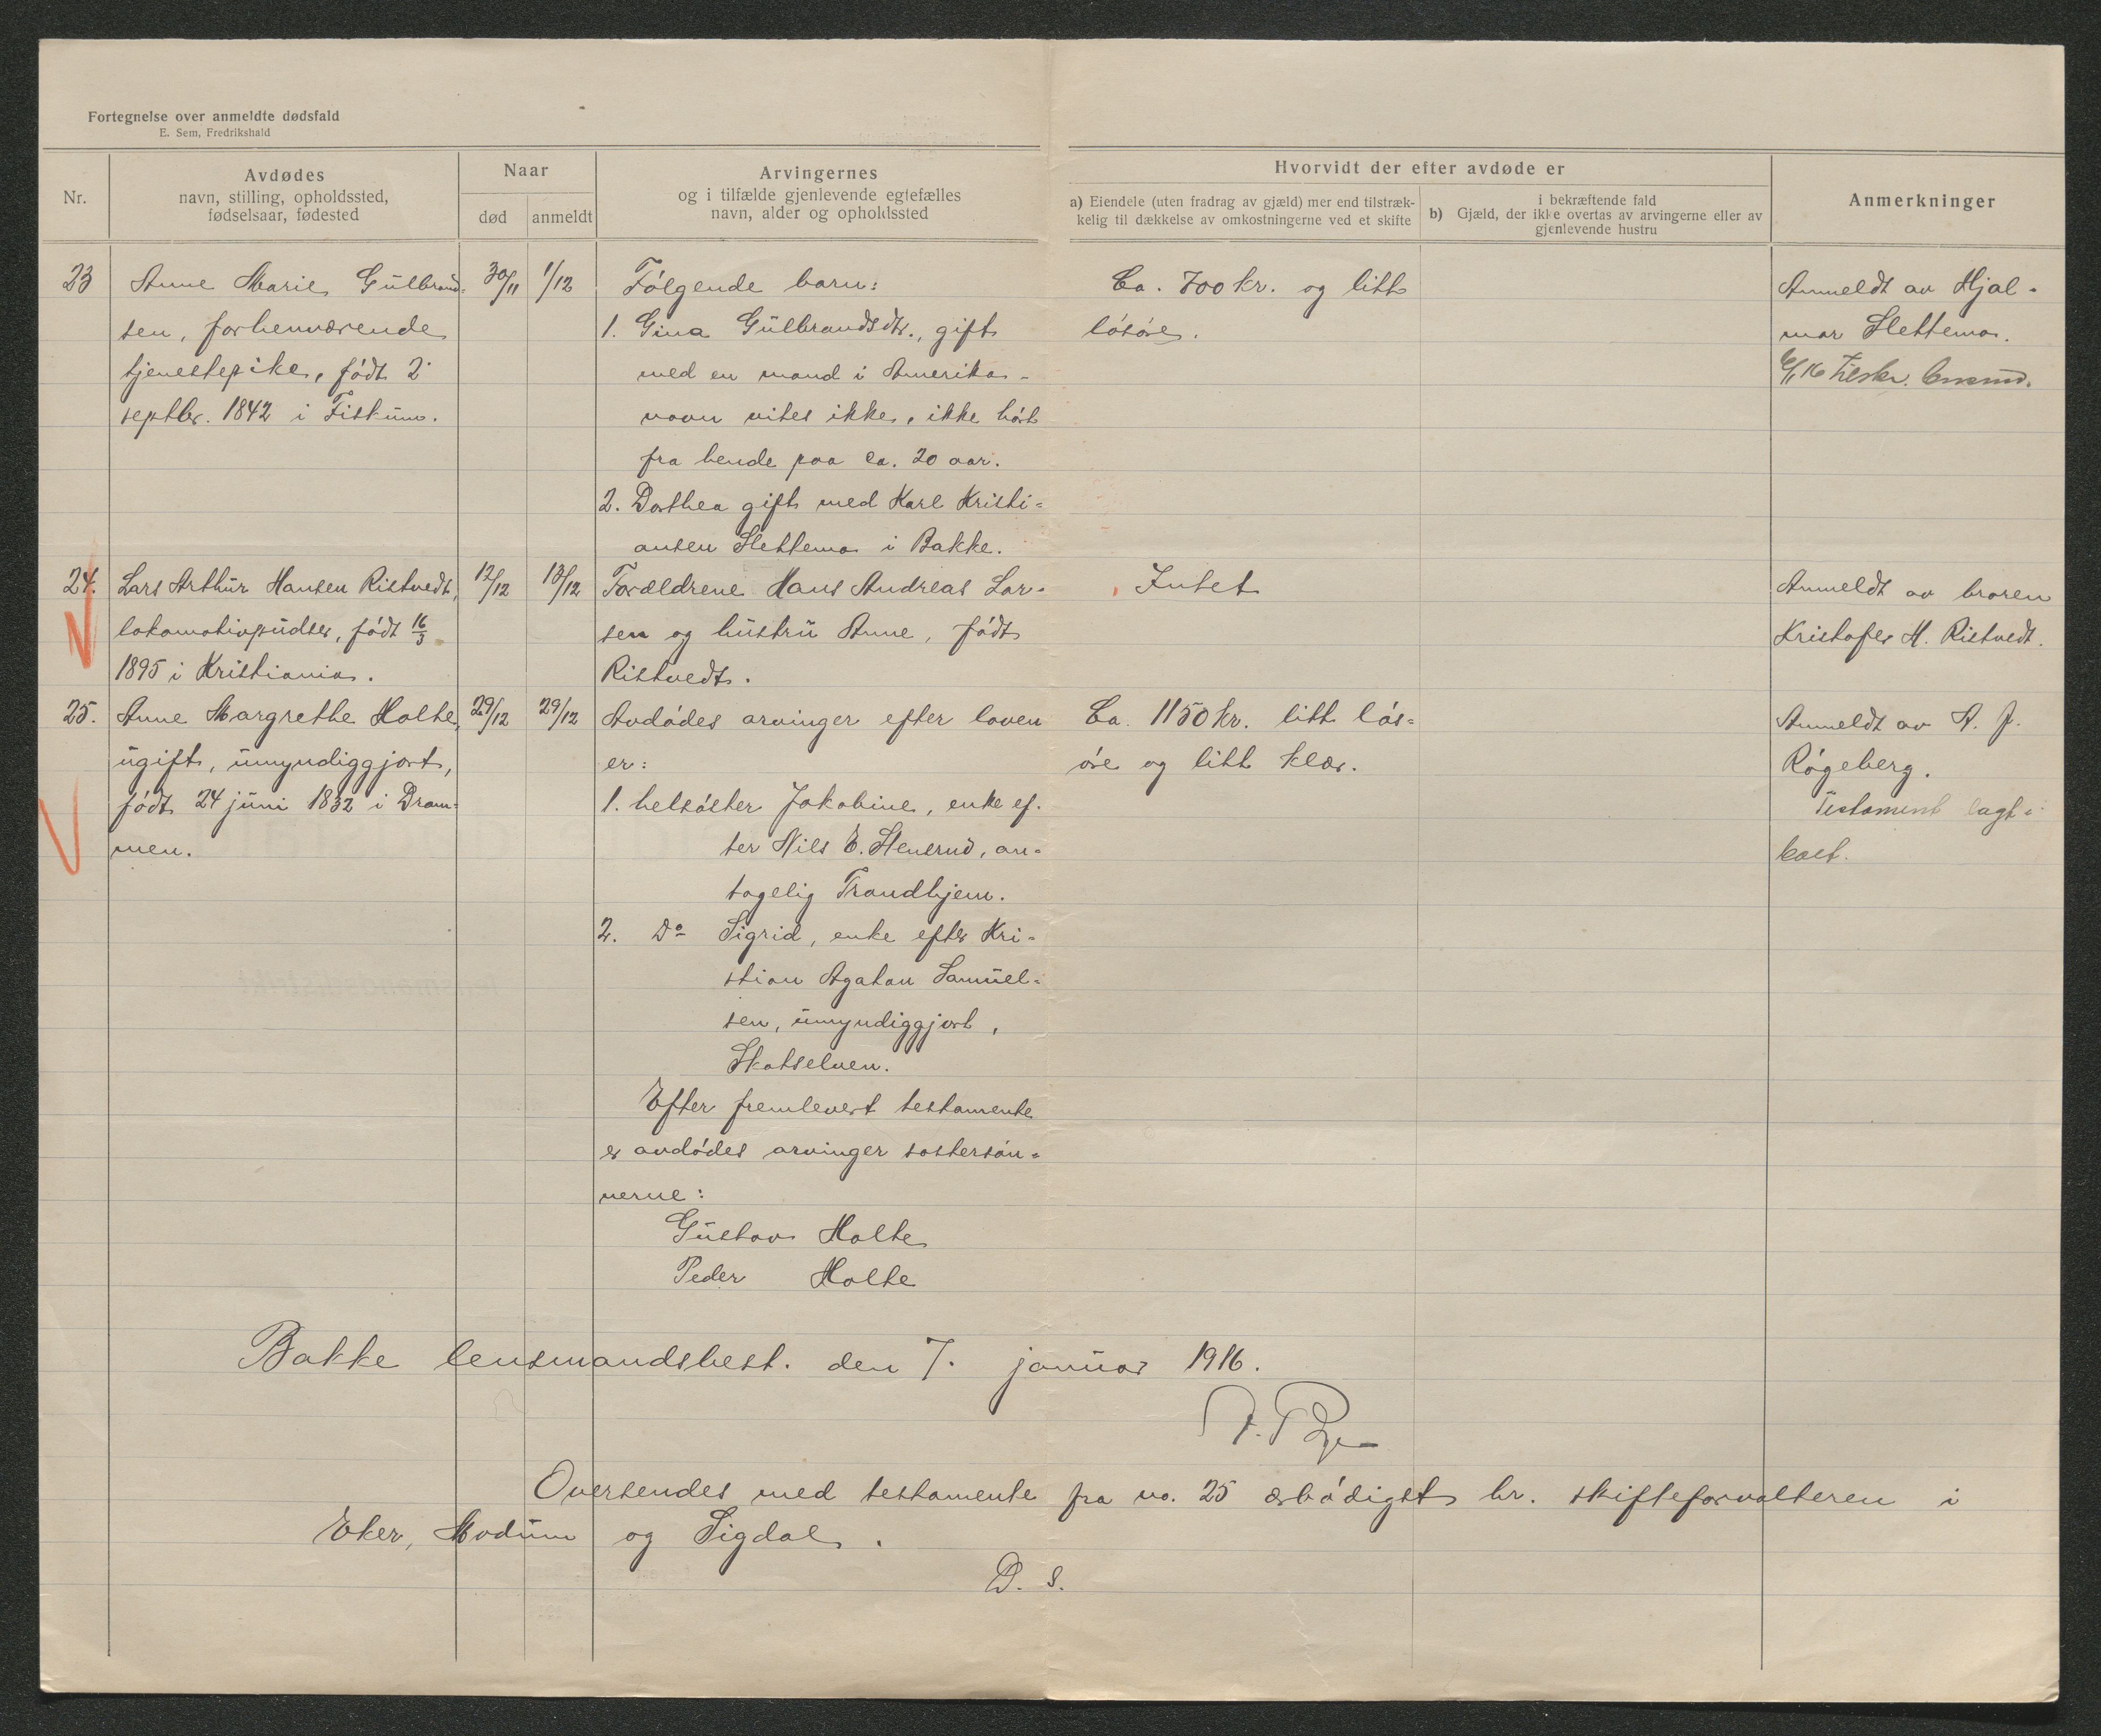 Fortegnelse over anmeldte dødsfald
E. Sem, Fredrikshald
Nr.
Avdødes
navn, stilling, opholdssted,
fødselsaar, fødested
Naar
død
anmeldt
Arvingernes
og i tilfælde gjenlevende egtefælles
navn, alder og opholdssted
Hvorvidt der efter avdøde er
a) Eiendele (uten fradrag av gjæld) mer end tilstræk-
kelig til dækkelse av omkostningerne ved et skifte
i bekræftende fald
b) Gjæld, der ikke overtas av arvingerne eller av
gjenlevende hustru
Anmerkninger
23
Anne Marie Gulbrand-
sen, forhenværende
tjenestepike, født 2
septbr. 1842 i Fiskum.
30/11
1/12
Følgende barn:
1. Gina Gulbrandsdtr., gift
med en mand i Amerika -
navn vites ikke, ikke hørt
fra hende paa ca. 20 aar.
2. Dorthea gift med Karl Kristi-
ansen Slettemo i Bakke.
Ca. 700 kr. og litt
løsøre.
Anmeldt av Hjal-
mar Slettemo.
24.
Lars Arthur Hansen Ristvedt,
lokomotivpudser, født 16/3
1895 i Kristiania.
12/12
13/12
Forældrene Hans Andreas Lar-
sen og hustru Anne, født
Ristvedt.
Intet
Anmeldt av broren
Kristofer H. Ristvedt.
25.
Anne Margrethe Holte,
ugift, umyndiggjort,
født 24 juni 1832 i Dram-
men.
29/12
29/12
Avdødes arvinger efter loven
er:
1. helsøster Jakobine, enke ef-
ter Nils E. Stenerud, an-
tagelig Trondhjem.
2. Do Sigrid, enke efter Kri-
stian Agaton Samuel-
sen, umyndiggjort,
Skotselven.
Efter fremlevert testamente
er avdødes arvinger søstersøn-
nerne:
Gustav Holte
Peder Holte
Ca. 1150 kr. litt løs-
øre og litt klær.
Anmeldt av A. J.
Røgeberg.
Testament lagt i
Bakke lensmandsbest. den 7. januar 1916.
Oversendes med testamente fra no. 25 ærbødigst hr. skifteforvalteren i
Eker, Modum og Sigdal.
D. S.